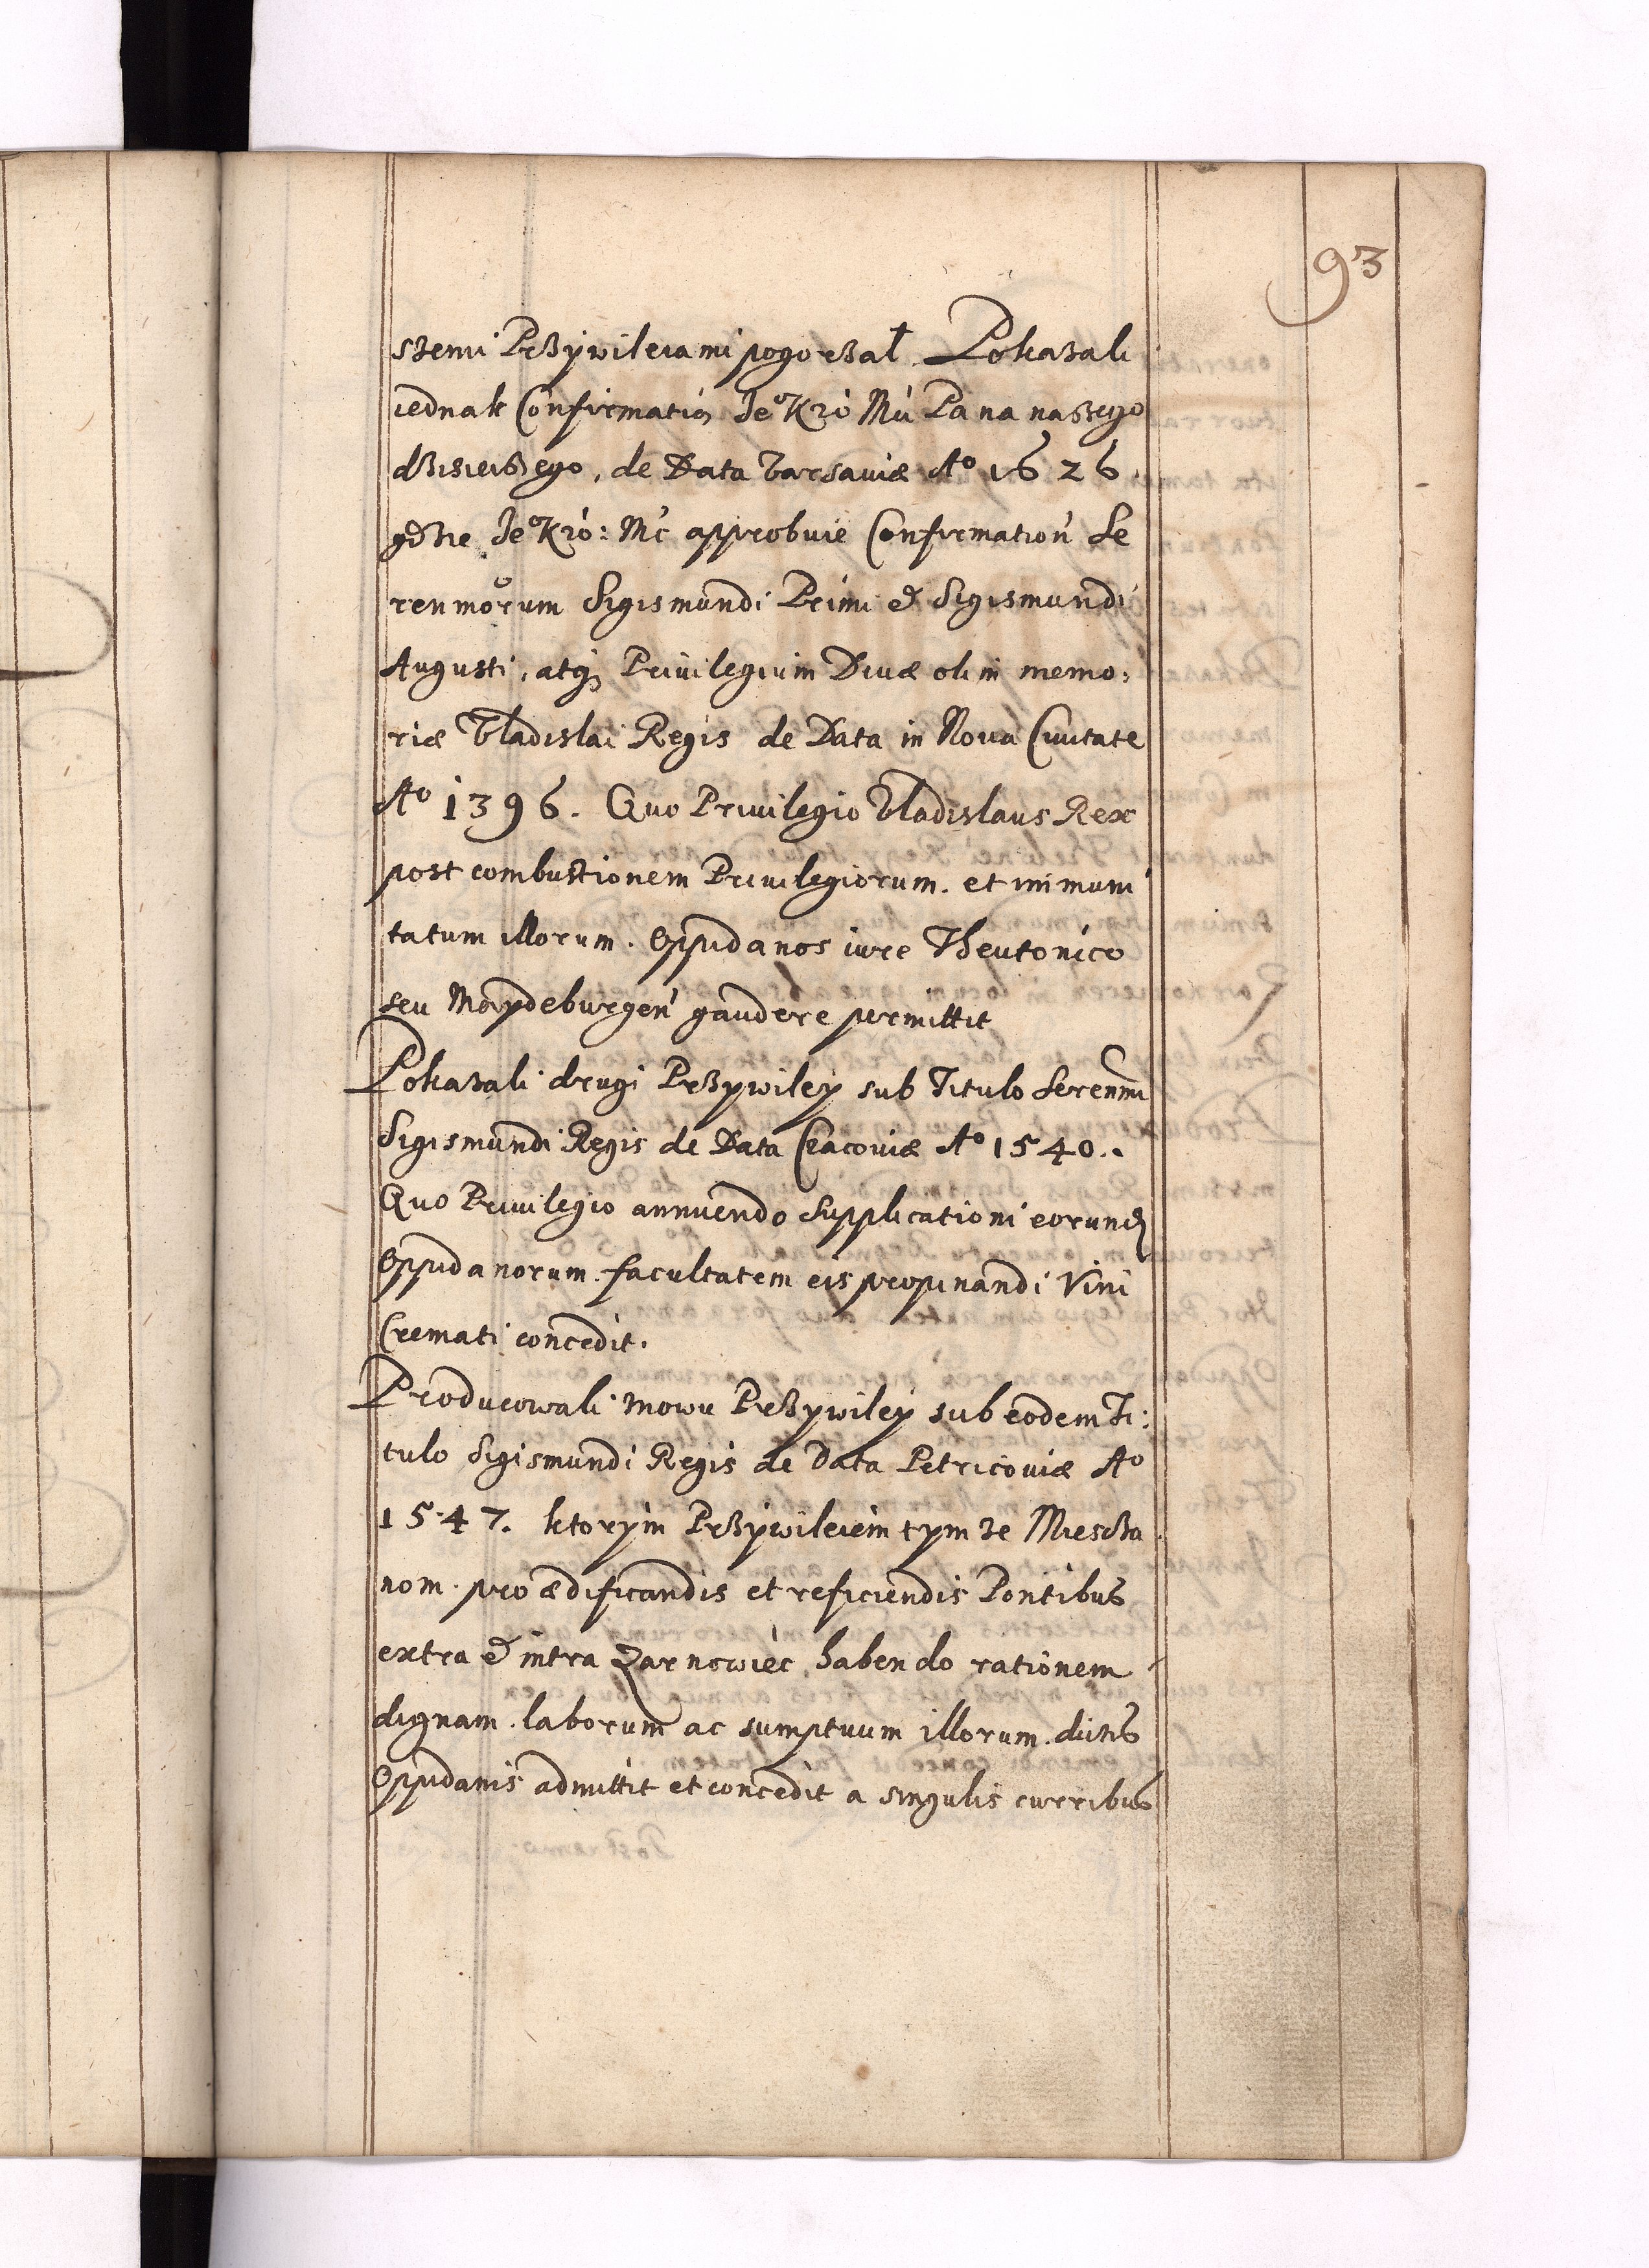 93
szemi Przywileiami pogorzał. Pokazali
iednak Confirmatią Je⁰ Kró Mći Pana naszego
dzisieiszego, de Data Varsaviæ A⁰ 1626
gdzie Je⁰ Kró: Mć approbuie Confirmation Se
renmorum Sigismundi Primi et Sigismundi
Augusti, atq Privilegium Divæ olim memo:
riæ Vladislai Regis de Data in Nova Civitate
A⁰ 1396. Quo Privilegio Vladislaus Rex
post combustionem Privilegiorum et immuni
tatum illorum. Oppidanos iure Theutonico
seu Maydeburgen gaudere permittit
Pokazali drugi Przywiley sub Titulo Serenmi
Sigismundi Regis de Data Cracoviæ A⁰ 1540.
Quo Privilegio annuendo supplicationi eorund
Oppidanorum facultatem eis propinandi Vini
Cremati concedit.
Producowali znowu Przywiley sub eodem Ti:
tulo Sigismundi Regis de Data Petricoviæ A⁰
1547. ktorym Przywileiem tym ze Miescza
nom pro ædificandis et reficiendis Pontibus
extra et intra Zarnowiec habendo rationem
dignam laborum ac sumptuum illorum dictis
Oppidanis admittit et concedit a singulis curribus